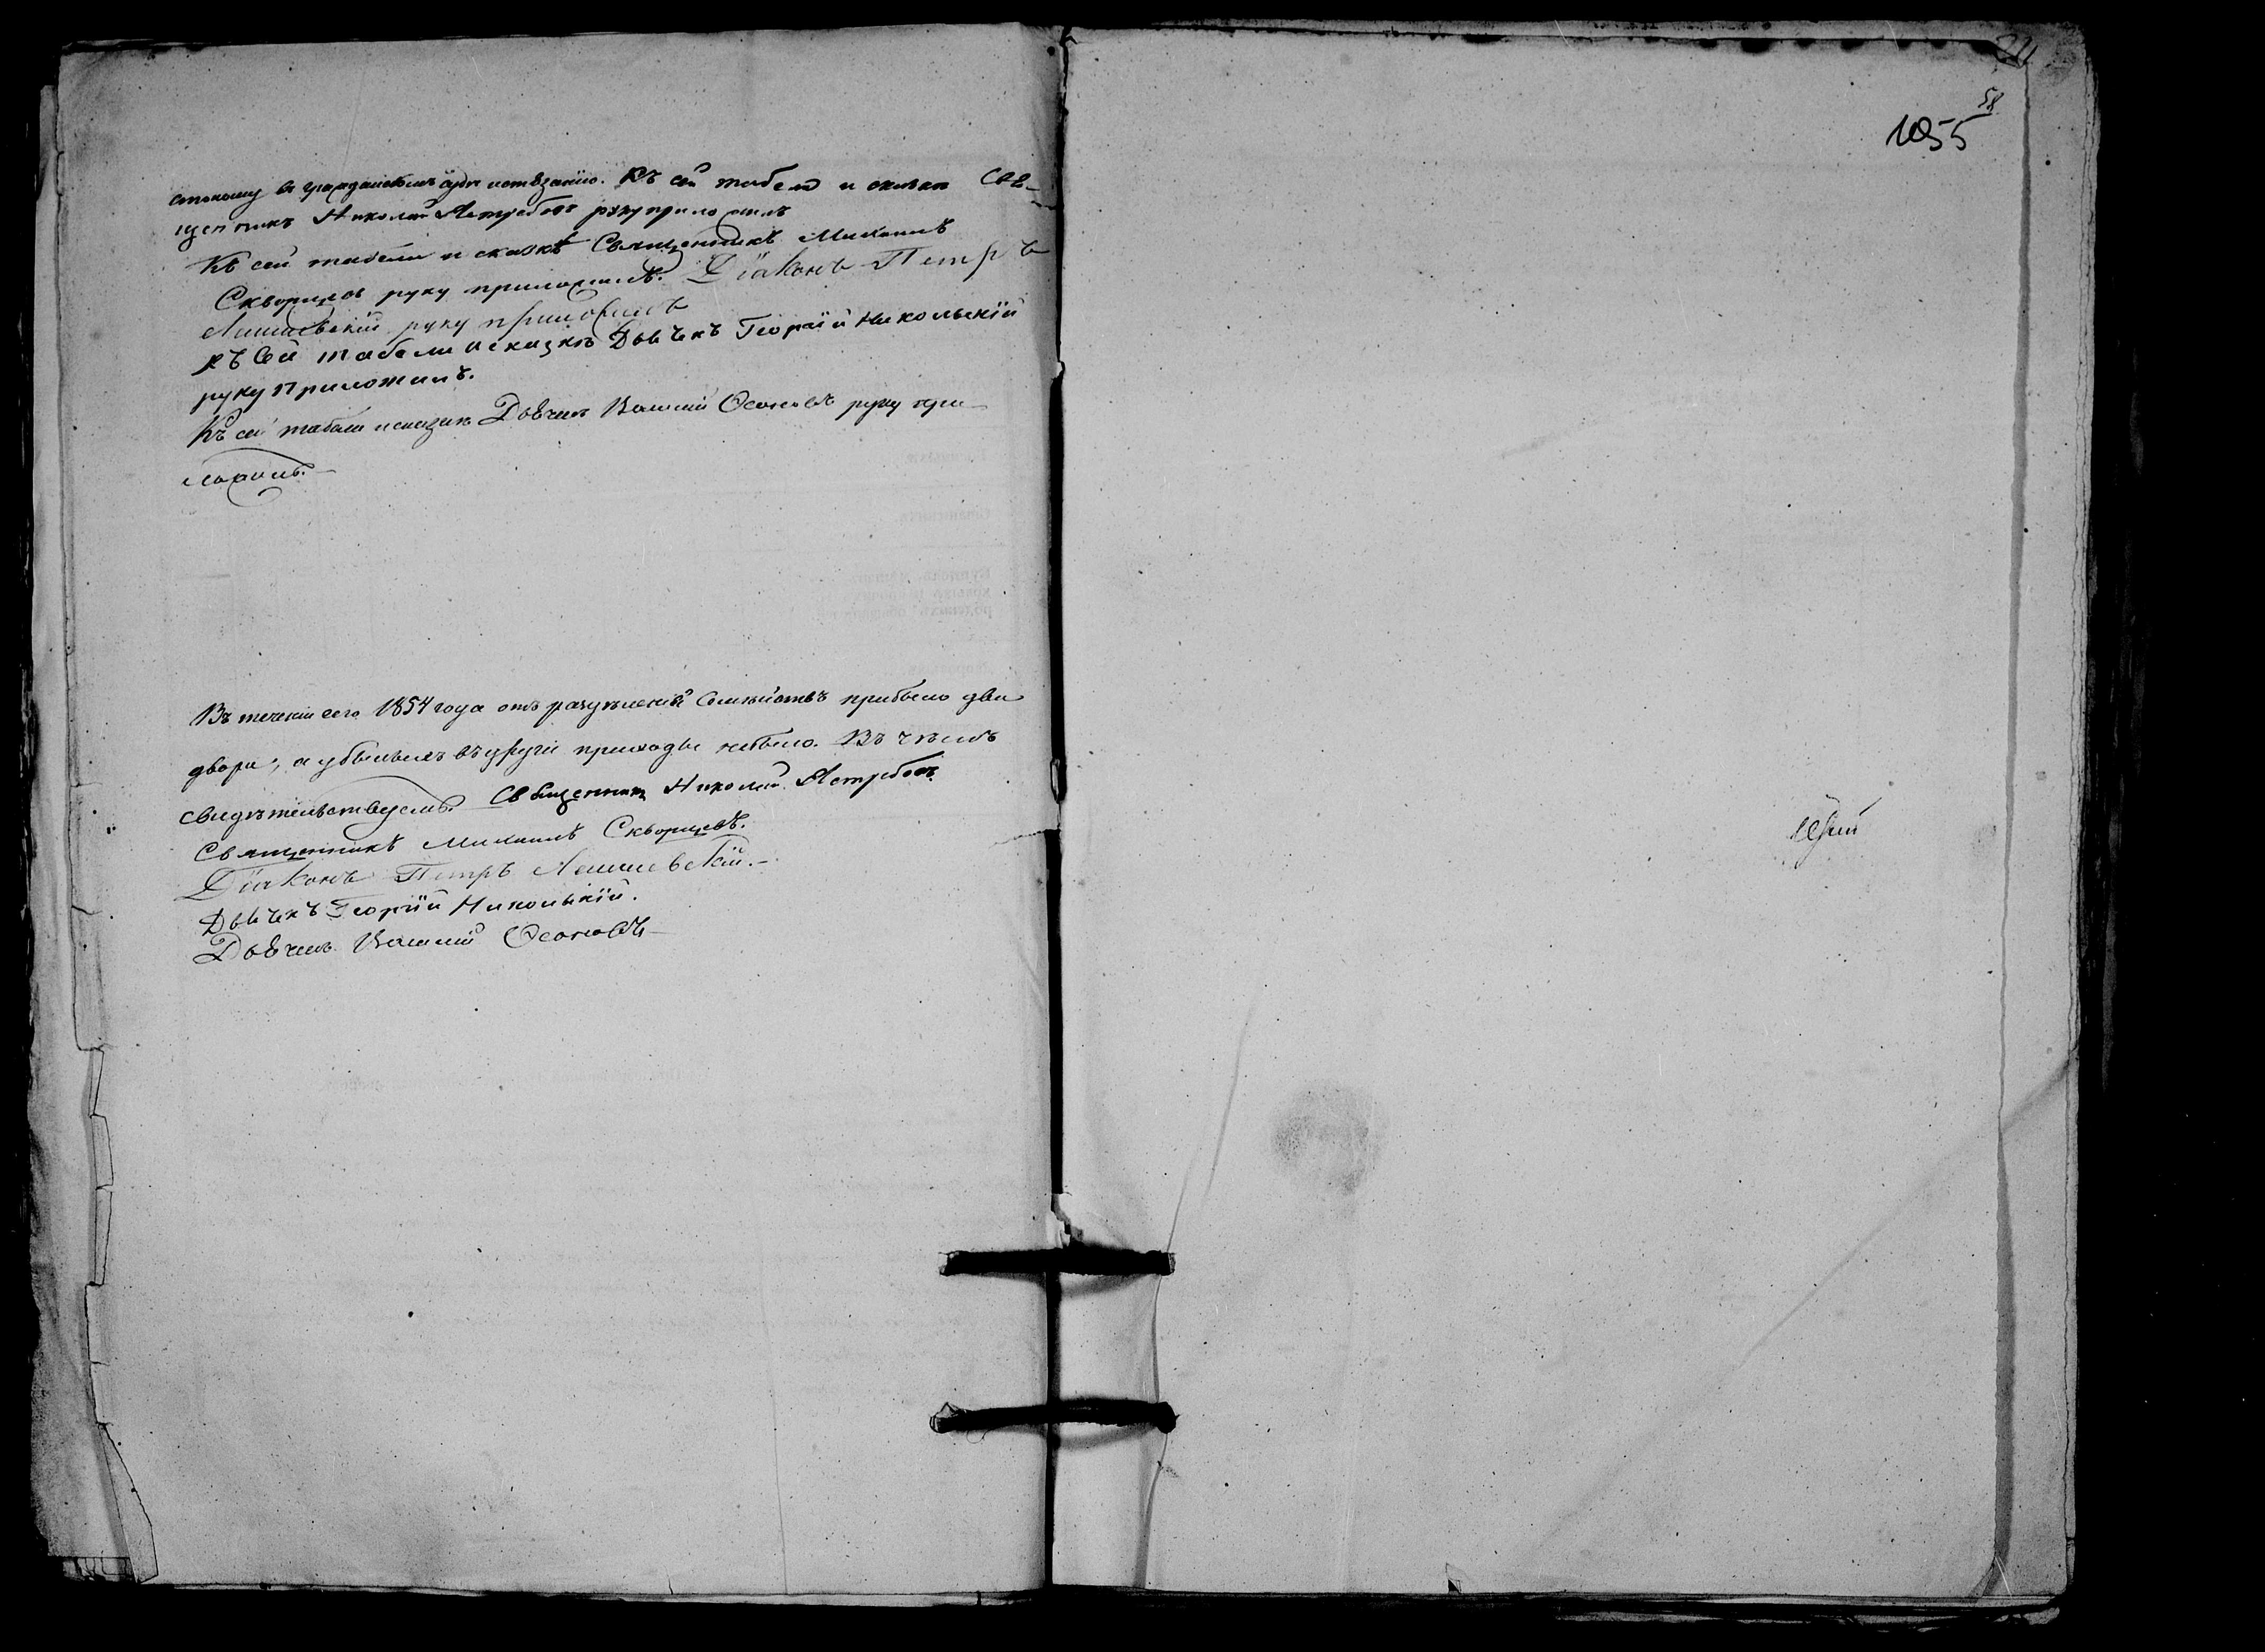 въ гражданскомъ судѣ истязанію. Къ сей табели и сказкѣ Свя-
щенникъ Николай Ястребовъ руку приложилъ
Къ сей табели и сказкѣ Священникъ Михаилъ
Скворцовъ руку приложилъ. Діаконъ Петръ
руку приложилъ
Къ сей табели и сказкѣ Дьячекъ Георгій Никольскій
руку приложилъ.
Къ сей табели и сказкѣ Дьячекъ Василій Осоновъ руку при-
ложилъ.
Въ теченіи сего 1854 года отъ раздѣленій семѣйствъ прибыло два
двора, а убылыхъ въ другіе приходы небыло. Въ чѣмъ
свидѣтельствуемъ. Священникъ Николай Ястребовъ
Священникъ Михаилъ Скворцовъ.
Діаконъ Петръ
Дьячекъ Георгій Никольскій.
Дьячекъ Василій Осоновъ
58
1055